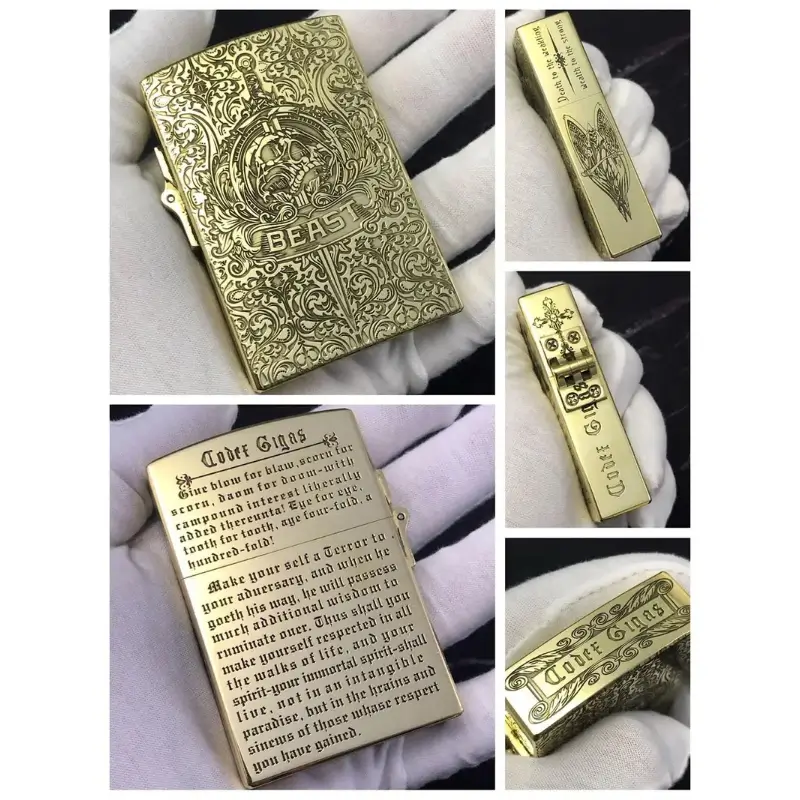 BEAST
Death to the weakling
wealth to the strong
Codex Gigas
Codex Gigas
Give blow for blaw, scorn for
scorn, daom for doom-with
campound interest literally
added thereunta! Eye for eye,
tooth for tooth, aye four-fold, a
hundred-fold!
Make your self a Terror to
your adversary, and when he
goeth his way, he will passess
much additional wisdom to
ruminate over. Thus shall you
make yourself respected in all
the walks of life, and your
spirit-your immortal spirit-shall
live, not in an intangible
paradise, but in the brains and
sinews of those whase respert
you have gained.
Codex Gigas